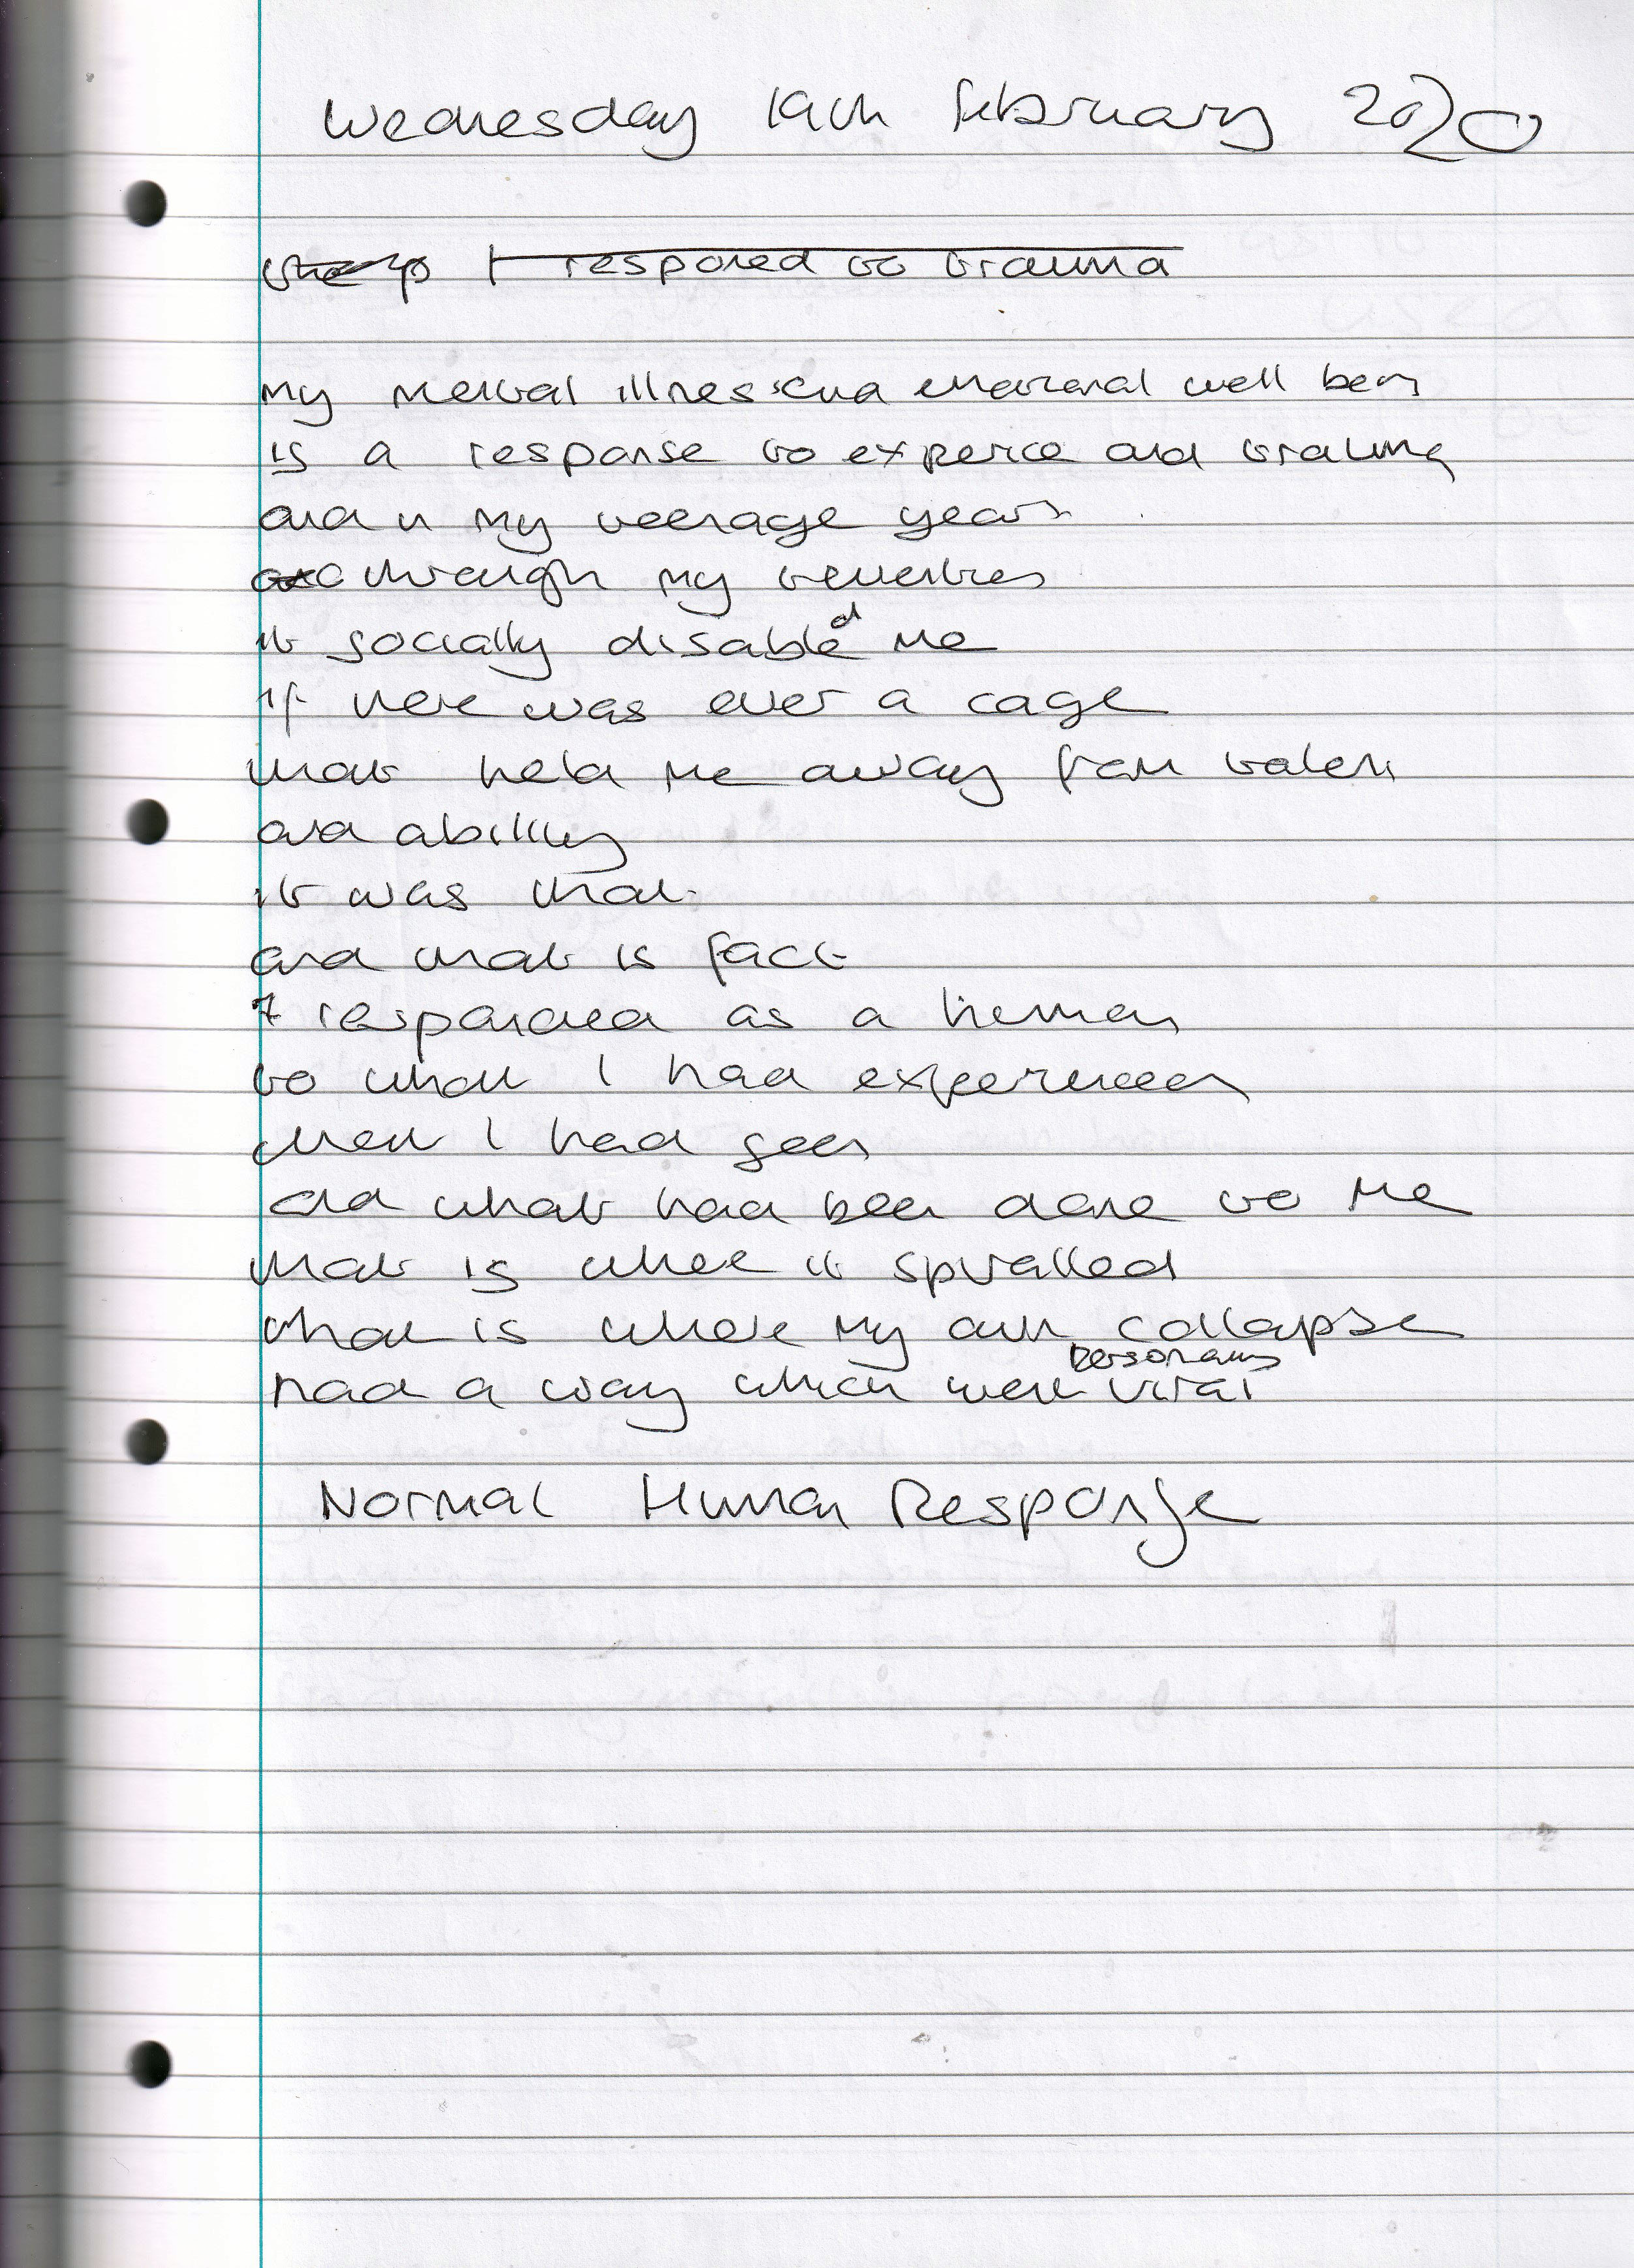 Wednesday 19th February 2020
I responed to trauma
My mental illness and emotional well being
is a response to experce and trauma
and in my teenage years
through my twenties
it socially disabled me
if there was ever a cage
that held me away from talent
and ability
it was that
and that is fact
I responded as a human
to what I had experienced
what I had seen
and what had been done to me
that is where it spiralled
that is where my own collapse
personally
had a way which went viral
Normal Human Response